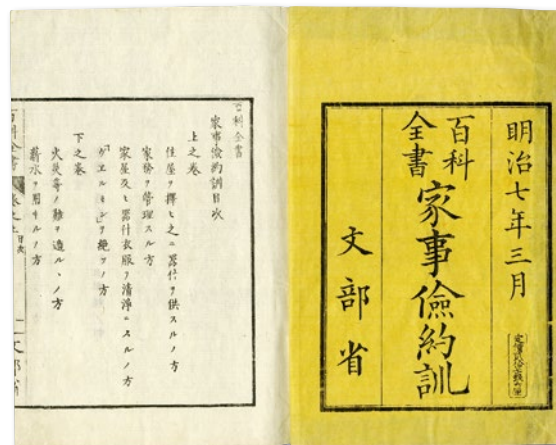 明治七年三月
百科全書 家事儉約訓
文部省
百科全書
家事儉約訓目次
上之卷
住屋ヲ擇ヒ之ニ器什ヲ供スルノ方
家務ヲ管理スル方
家屋及ヒ器什衣服ヲ淸淨ニスルノ方
「ヴエルミン」ヲ絶ツノ方
下之卷
火災等ノ難ヲ遁ルヽノ方
薪水ヲ用ヰルノ方
百科全書 卷之上 目次 一 文部省